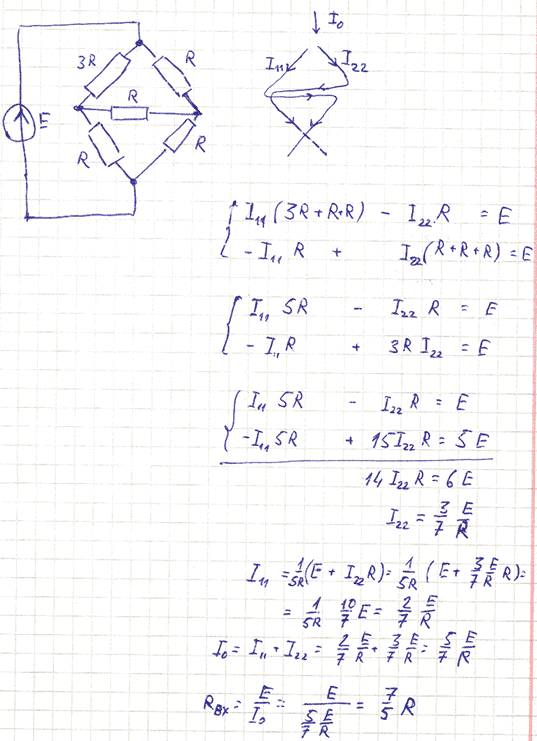 I₀
3R R
I₁₁ I₂₂
R
E
R R
I₁₁ (3R + R+R) - I₂₂ R = E
- I₁₁ R + I₂₂ (R + R + R) = E
I₁₁ 5R - I₂₂ R = E
- I₁₁ R + 3R I₂₂ = E
I₁₁ 5R - I₂₂ R = E
- I₁₁ 5R + 15 I₂₂ R = 5 E
14 I₂₂ R = 6 E
I₂₂ = 3/7 E/R
I₁₁ = 1/5R (E + I₂₂ R) = 1/5R (E + 3/7 E/R R) =
= 1/5R 10/7 E = 2/7 E/R
I₀ = I₁₁ + I₂₂ = 2/7 E/R + 3/7 E/R = 5/7 E/R
Rвх = E/I₀ = E/(5/7 E/R) = 7/5 R